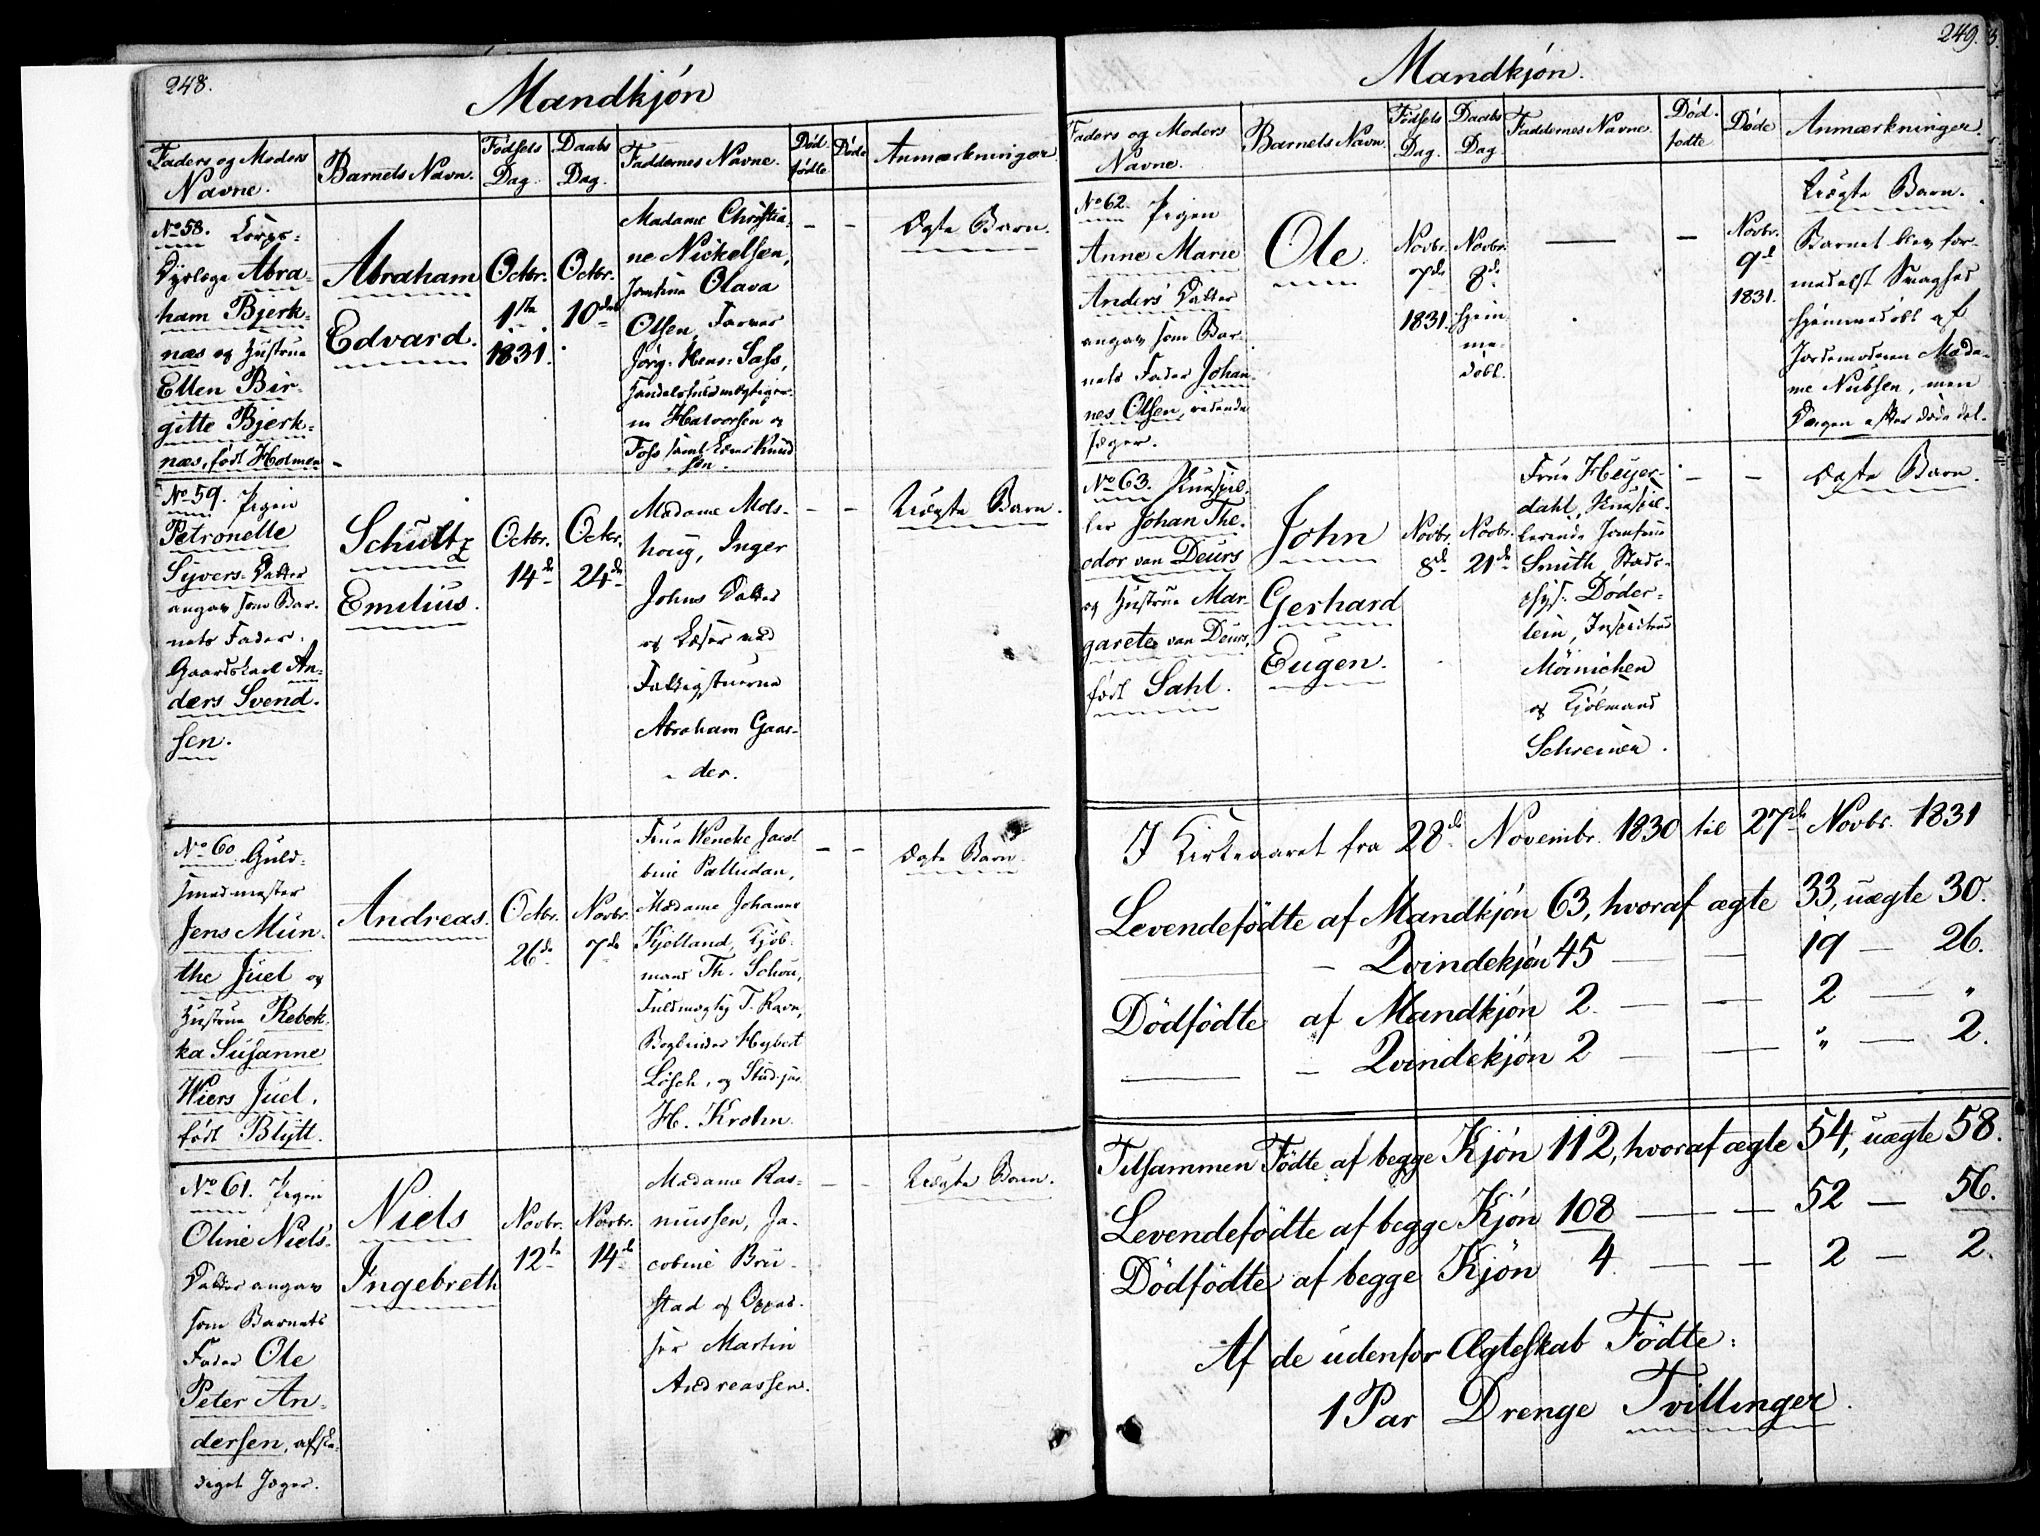 248.
Mandkjön
Faders og Moders
Navne.
Barnets Navn.
Födsels
Dag.
Daabs
Dag.
Faddernes Navne.
Död
födte
Döde
Anmærkninger
No 58. Corps-
Dyrlæge Abra-
ham Bjerk-
næs og Hustrue
Ellen Bir-
gitte Bjerk-
næs, født Holmen
Abraham
Edvard.
Octbr.
1ste
1831.
Octbr.
10de
Madame Christia-
ne Nickelsen,
Jomfrue Olava
Olsen, Farver
Jörg. Hens: Sass,
Handelsfuldmægtiger-
ne Halvorsen og
Foss samt Lieut. Knud
sen.
Ægte Barn.
No 59. Pigen
Petronelle
Syvers Datter
angav som Bar-
nets Fader
Gaardskarl An-
ders Svend-
sen.
Schultz
Emilius.
Octbr.
14de
Octbr.
24de
Madame Mols-
houg, Inger
Johns Datter
og Læser ved
Fattigstuerne
Abraham Gaas-
der.
Uægte Barn.
No 60 Guld-
smedmester
Jens Mun-
the Juel og
Hustrue Rebek-
ka Susanne
Wiers Juel,
født Blytt.
Andreas.
Octbr.
26de
Novbr.
7de
Frue Wencke Jacob
bine Palludan,
Madame Johanne
Kjelland, Kjöb-
mand Th. Schou,
Fuldmægtig T. Ravn,
Bogbinder Hybert
Lösch, og Stud. jur.
H. Krohn.
Ægte Barn.
No 61. Pigen
Oline Niels-
Datter angav
som Barnets
Fader Ole
Peter An-
dersen, afske-
diget Jæger.
Niels
Ingebreth
Novbr.
12te
Novbr.
14de
Madame Ras-
mussen, Ja-
cobine Bru-
stad og Oppas-
ser Martin
Andreassen.
Uægte Barn.
249.
Mandkjön.
Faders og Moders
Navne.
Barnets Navn.
Födsels
Dag.
Daabs
Dag.
Faddernes Navne.
Död-
födte
Döde
Anmærkninger.
No 62. Pigen
Anne Marie
Anders Datter
angav som Bar-
nets Fader Johan-
nes Olsen, ridende
Jæger.
Ole.
Novbr.
7de
1831.
Novbr.
8de
hjem
me-
döbt.
Novbr.
9de
1831.
Uægte Barn.
Barnet blev for-
medelst Svaghed
hjemmedöbt af
Jordemoderen Mada-
me Nubsen, men
Dagen efter døde det.
No 63. Skuespil-
ler Johan The-
odor van Deurs
og Hustrue Mar-
garete van Deurs,
født Sahl.
John
Gerhard
Eugen.
Novbr.
8de
Novbr.
21de
Frue Heyer-
dahl, Skuespil-
lerinde Jomfrue
Smith, Stads-
phys. Döder-
lein, Inspecteur
Möinichen
og Kjöbmand
Schreiner.
Ægte Barn.
I Kirkeaaret fra 28de Novembr. 1830 til 27de Novbr. 1831
Levendefödte af Mandkjön 63, hvoraf ægte 33, uægte 30.
— Qvindekjön 45 — — 19 — 26.
Dödfödte af Mandkjön 2. — — 2 — "
— Qvindekjön 2 — — " — 2.
Tilsammen Födte af begge Kjön 112, hvoraf ægte 54, uægte 58.
Levendefödte af begge Kjön 108 — — 52 — 56.
Dödfödte af begge Kjön 4. — — 2 — 2.
Af de udenfor Ægteskab Födte:
1 Par Drenge Tvillinger.